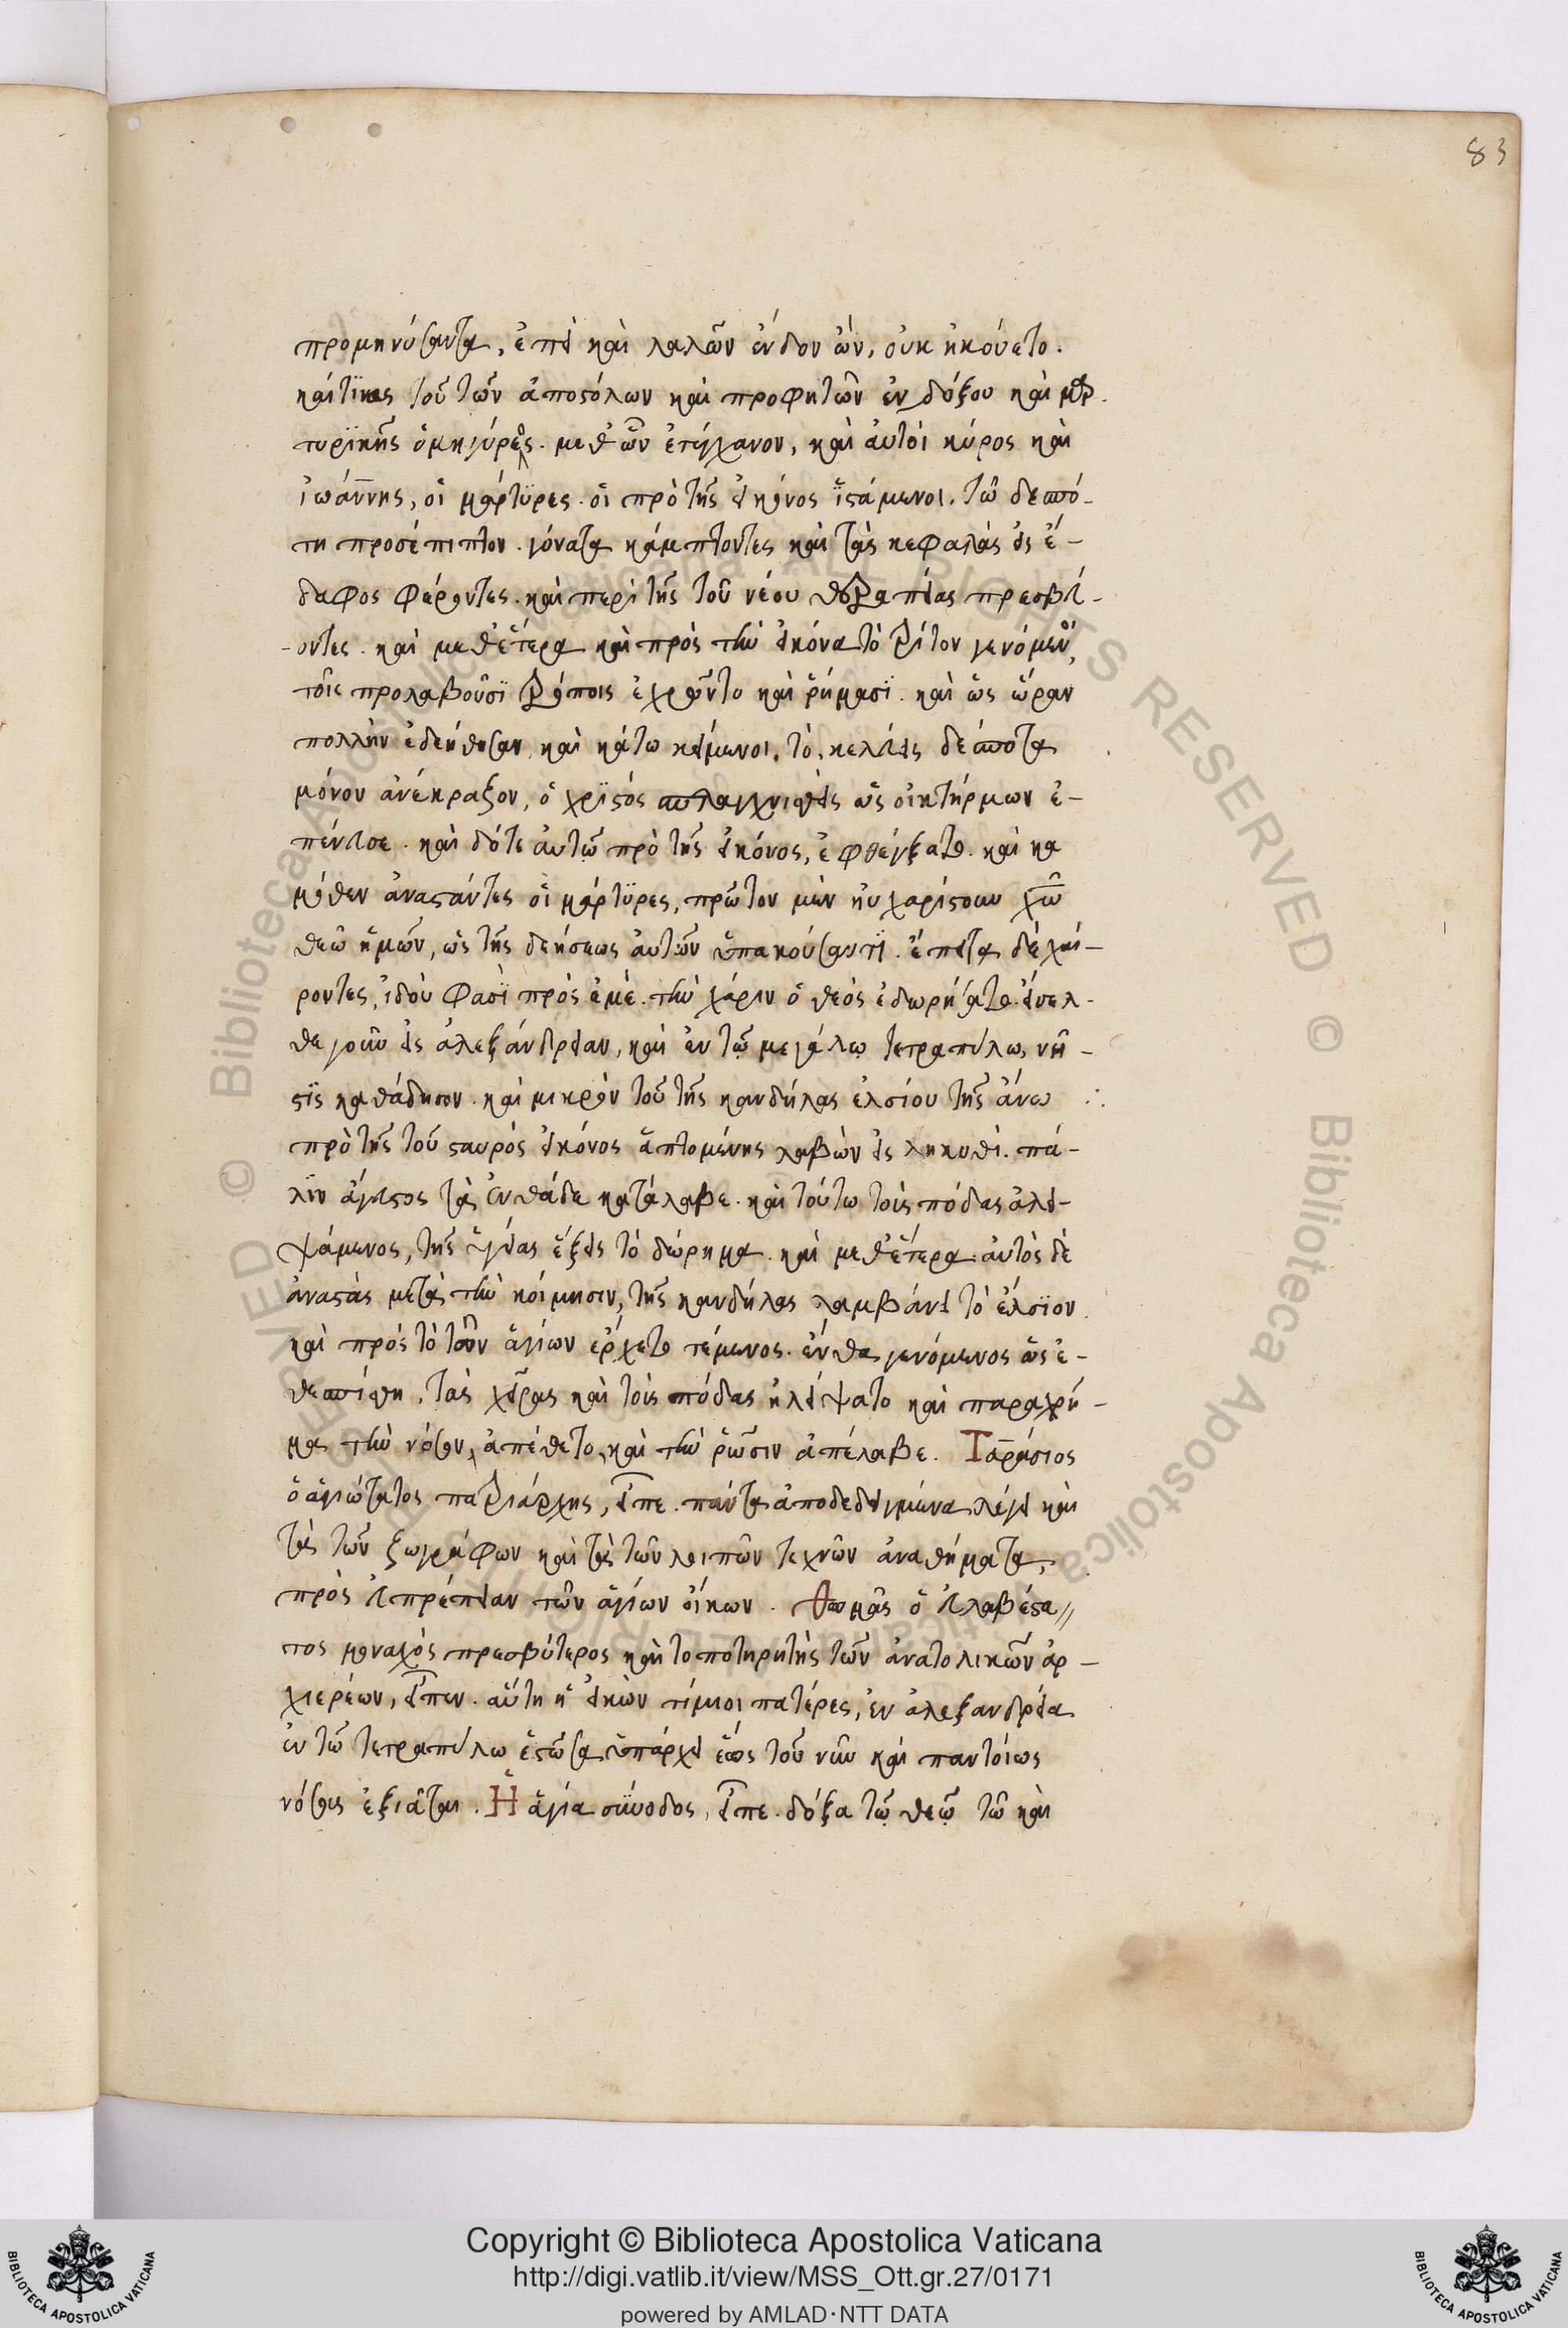 83
προμηνύσαντα, ἐπεὶ καὶ λαλῶν ἔνδον ὢν, οὐκ ἠκούετο.
καίτινες τοῦ τῶν ἀποστόλων καὶ προφητῶν ἐνδόξου καὶ μαρ-
τυρϊκῆς ὁμηγύρεως. μεθ' ὧν ἐτύγχανον, καὶ αὐτοὶ κύρος καὶ
ἰωάννης, οἱ μάρτϋρες. οἳ πρὸ τῆς εἰκόνος ἱστάμενοι. τῶ δεσπό-
τη προσέπιπτον. γόνατα κάμπτοντες καὶ τὰς κεφαλὰς εἰς ἔ-
δαφος φέροντες. καὶ περὶ τῆς τοῦ νέου θεραπείας πρεσβεύ-
-οντες. καὶ μεθ' ἕτερα καὶ πρὸς τὴν εἰκόνα τὸ τρίτον γενόμενοι,
τοῖς προλαβοῦσϊ τρόποις ἐχρῶντο καὶ ῥήμασϊ. καὶ ὡς ὥραν
πολλὴν ἐδεήθησαν καὶ κάτω κείμενοι. τὸ, κελεύεις δέσποτα
μόνον ἀνέκραξον, ὁ χρϊστὸς σπλαγχνισθεὶς ὡς οἰκτίρμων ἐ-
πένευσε. καὶ δότε αὐτῷ πρὸ τῆς εἰκόνος, ἐφθέγξατο. καὶ χα
μόθεν ἀναστάντες οἱ μάρτϋρες, πρῶτον μὲν ηὐχαρίστουν χω
θεῶ ἡμῶν, ὡς τῆς δεήσεως αὐτῶν ὑπακούσαντϊ. ἔπειτα δὲ χαί-
ροντες, ἰδοὺ φασϊ πρὸς ἐμέ. τὴν χάριν ὁ θεὸς ἐδωρήσατο. ἄνελ-
θε γοῦν εἰς ἀλεξάνδρειαν, καὶ ἐν τῷ μεγάλῳ τετραπύλω, νῆ-
στϊς καθεύδησον. καὶ μικρὸν τοῦ τῆς κανδήλας ἐλαίου τῆς ἄνω
πρὸ τῆς τοῦ σωτῆρος εἰκόνος ἁπτομένης λαβὼν εἰς ληκύθι. πά-
λϊν ἄγευστος τὰ ἐνθάδε κατάλαβε. καὶ τούτω τοὺς πόδας ἀλει-
ψάμενος, τῆς ὑγείας ἕξεις τὸ δώρημα. καὶ μεθ' ἕτερα. αὐτὸς δὲ
ἀναστὰς μετὰ τὴν κοίμησιν, τῆς κανδήλας λαμβάνει τὸ ἔλαϊον.
καὶ πρὸς τὸ τῶν ἁγίων ἔρχεται τέμενος. ἔνθα γενόμενος ὡς ἐ-
θεσπίσθη, τὰς χεῖρας καὶ τοὺς πόδας ἠλείψατο καὶ παραχρῆ-
μα τὴν νόσον, ἀπέθετο, καὶ τὴν ῥῶσιν ἀπέλαβε. Ταράσιος
ὁ ἁγιώτατος πατριάρχης, εἶπε. πάντα ἀποδεδειγμένα λέγει καὶ
τὰ τῶν ζωγράφων καὶ τὰ τῶν λοιπῶν τεχνῶν ἀναθήματα,
πρὸς εὐπρέπειαν τῶν ἁγίων οἴκων. Θωμᾶς ὁ εὐλαβέστα//
τος μοναχὸς πρεσβύτερος καὶ τοποτηρητὴς τῶν ἀνατολικῶν ἀρ-
χιερέων, εἶπεν. αὕτη ἡ εἰκὼν τίμιοι πατέρες, ἐν ἀλεξανδρεία
ἐν τῶ τετραπύλω ἑστῶσα ὑπάρχει ἕως τοῦ νῦν καὶ παντοίως
νόσους ἐξιᾶται. Ἡ ἁγία σύνοδος, εἶπε. δόξα τῷ θεῷ τῶ καὶ
BIBLIOTECA APOSTOLICA VATICANA
Copyright © Biblioteca Apostolica Vaticana
http://digi.vatlib.it/view/MSS_Ott.gr.27/0171
powered by AMLAD·NTT DATA
BIBLIOTECA APOSTOLICA VATICANA